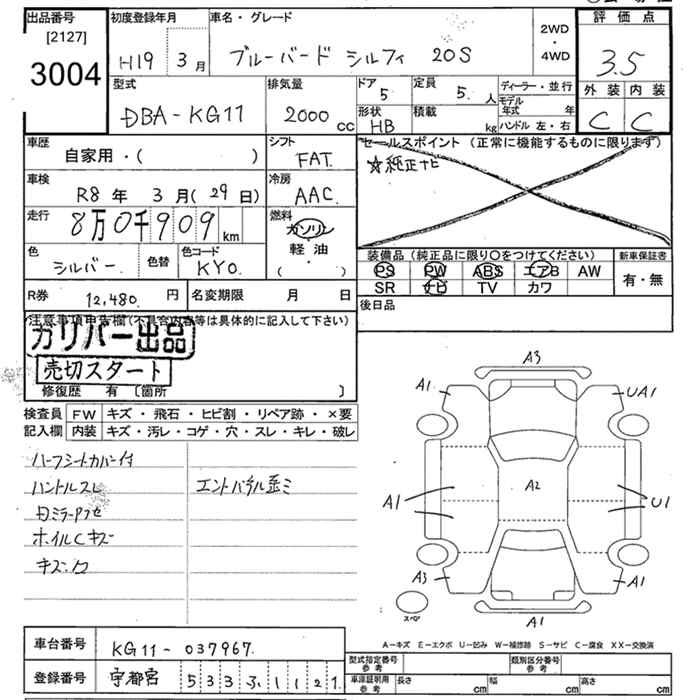 出品番号
[2127]
3004
初度登録年月
H19 3月
車名・グレード
ブルーバード シルフィ 20S
2WD
・
4WD
評価点
3.5
外装 内装
C C
型式
DBA-KG11
排気量
2000 CC
ドア
5
定員
5. 人
形状
HB
積載
kg
ディーラー・並行
モデル年式 年
ハンドル 左・右
車歴
自家用・( )
シフト
FAT.
セールスポイント (正常に機能するものに限ります)
☆純正ナビ
車検
R8年 3月(29日)
冷房
AAC.
走行
8万0千909 km
燃料
ガソリン
軽・油
( )
色
シルバー.
色替
色コード
KYO.
装備品 (純正品に限り〇をつけてください)
PS PW ABS エアB AW
SR ナビ TV カワ
新車保証書
有・無
R券 12,480. 円
名変期限 月 日
後日品
注意事項申告欄(不具合内容等は具体的に記入して下さい)
ガリバー出品
売切スタート
修復歴 有 〔箇所 〕
検査員
記入欄
FW キズ・飛石・ヒビ割・リペア跡・×要
内装 キズ・汚レ・コゲ・穴・スレ・キレ・破レ
ハーフシートカバー付
ハントルスレ
エントパネル歪ミ
ホイルCキズ
A3
A1
UA1
A1
A2
U1
A3
A1
スペア
A1
A-キズ E-エクボ U-凹み W-補修跡 S-サビ C-腐食 XX-交換済
車台番号
KG11-037967.
登録番号
宇都宮 533
型式指定番号
参考
類別区分番号
参考
車庫証明用
参考
長さ cm
幅 cm
高さ cm